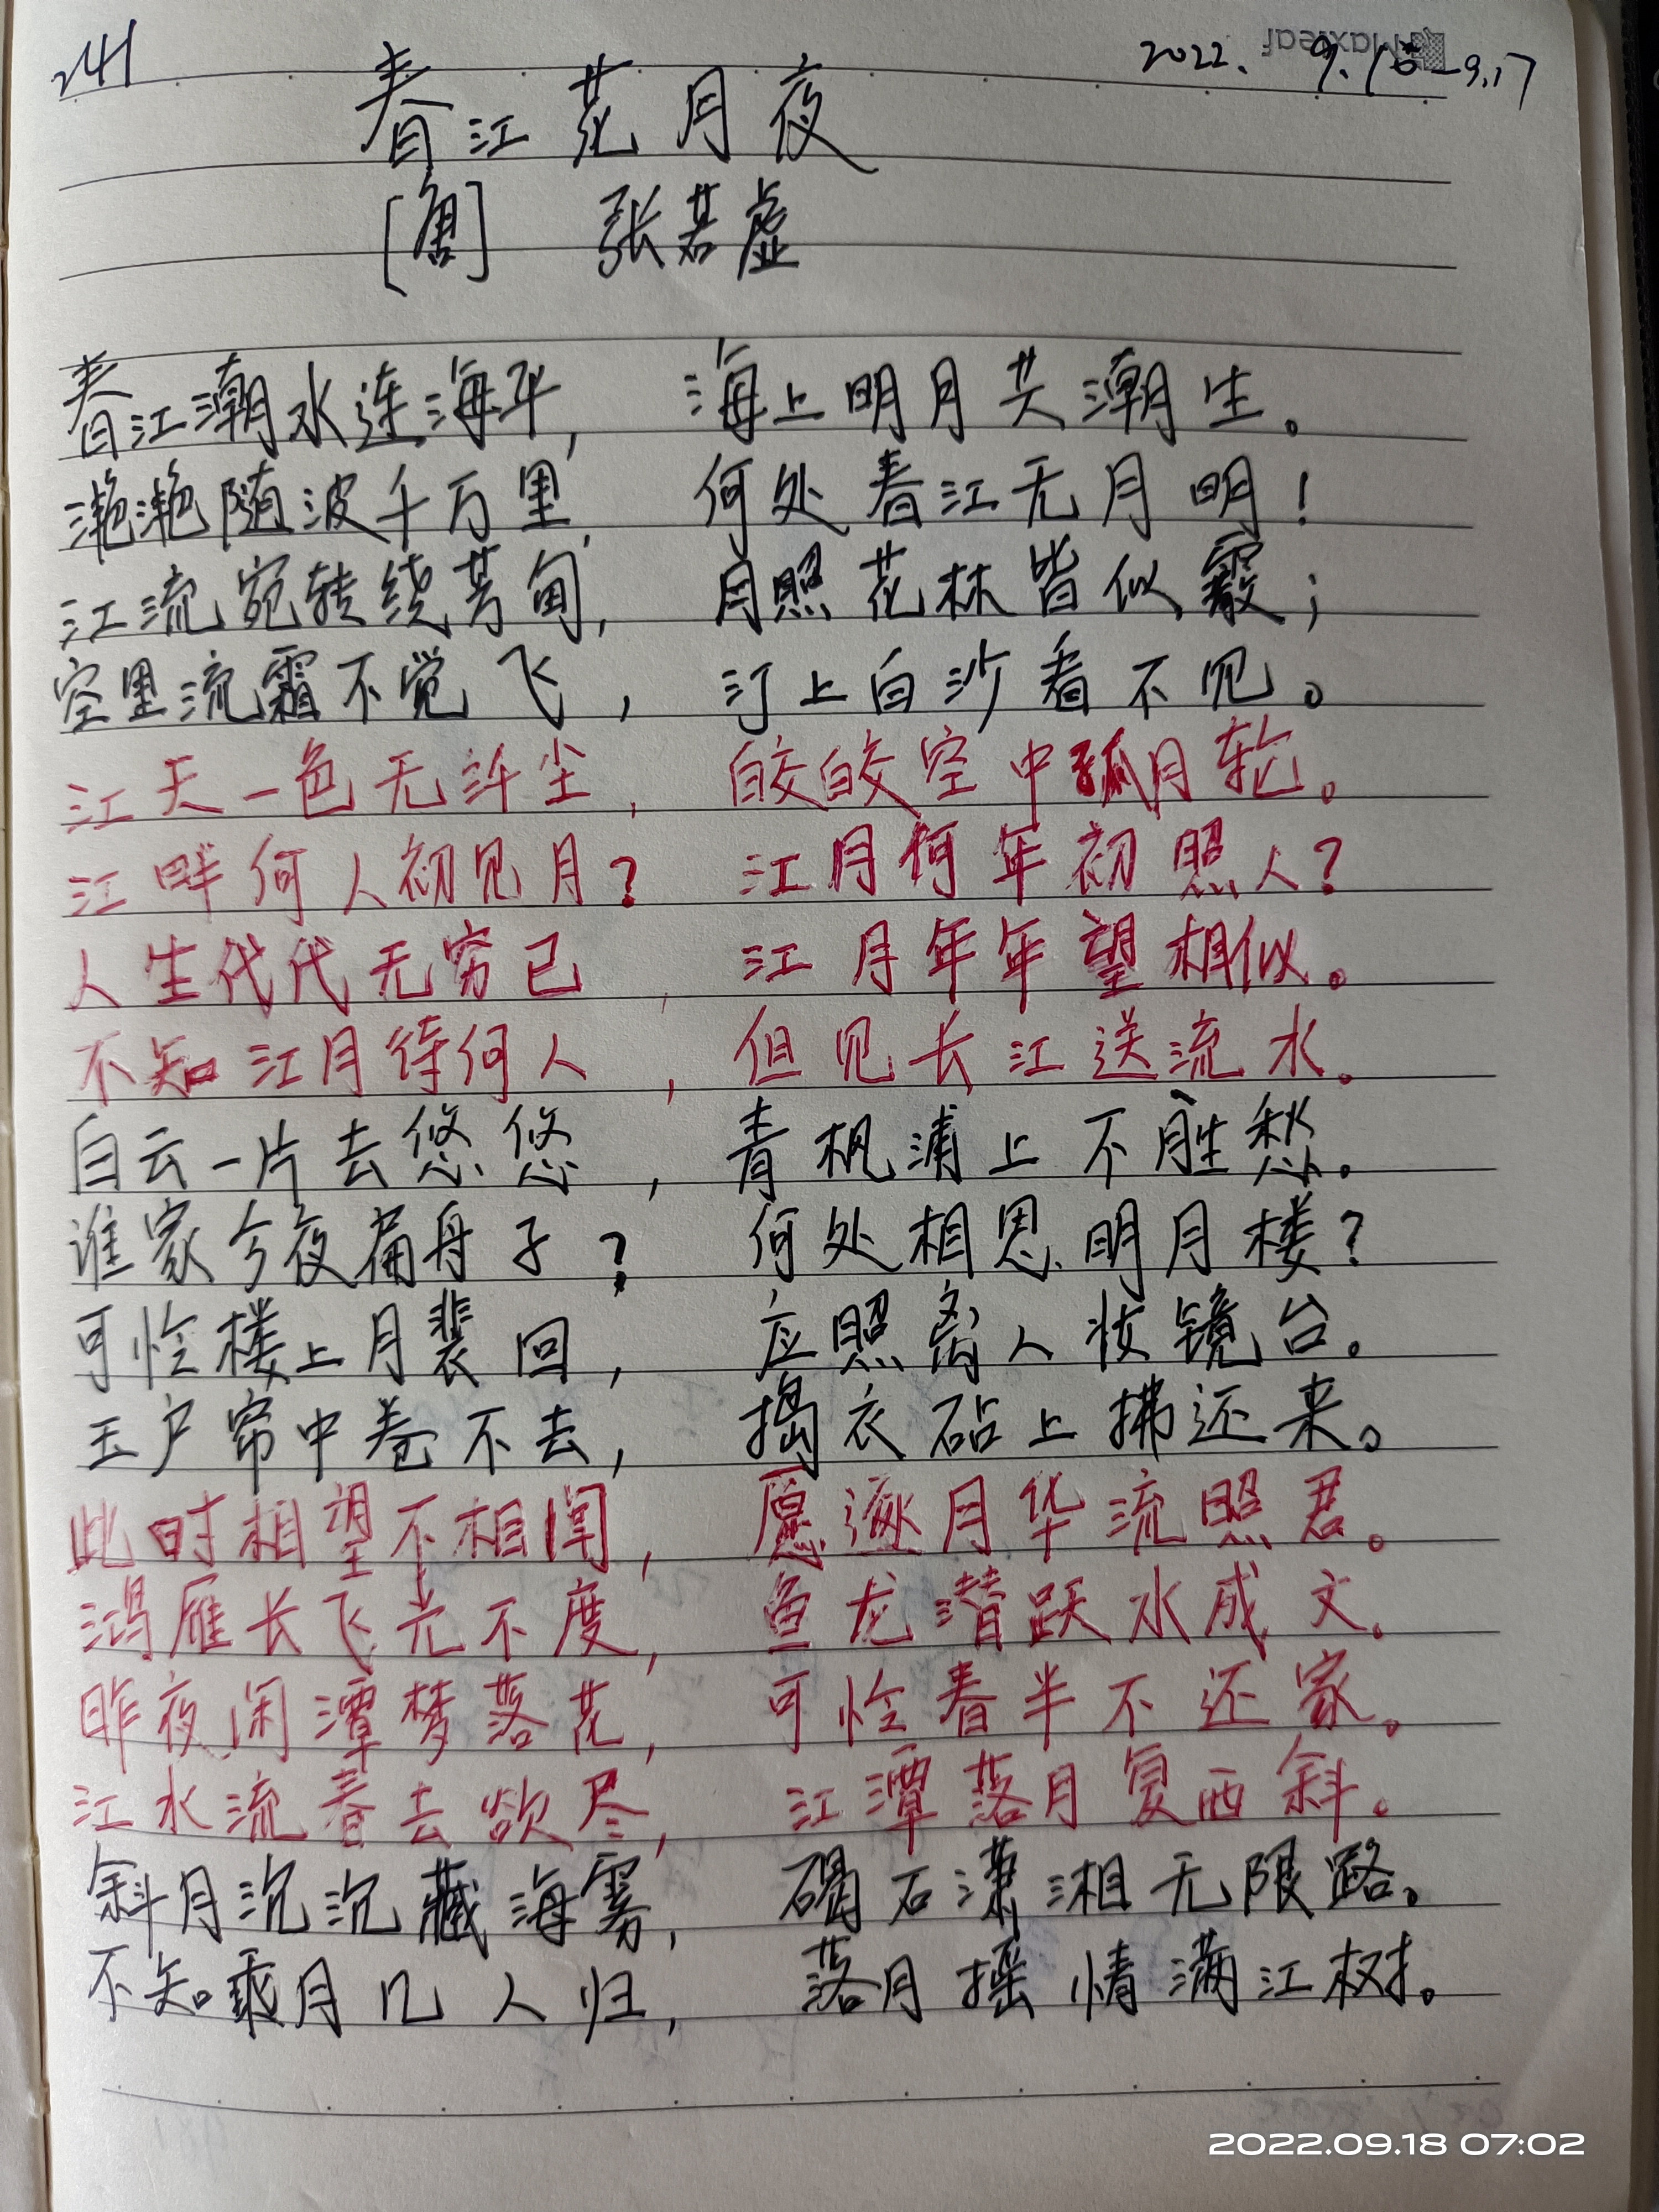 241
2022. 9.15-9.17
Maxleaf
春江花月夜
[唐] 张若虚
春江潮水连海平, 海上明月共潮生。
滟滟随波千万里, 何处春江无月明!
江流宛转绕芳甸, 月照花林皆似霰;
空里流霜不觉飞, 汀上白沙看不见。
江天一色无纤尘, 皎皎空中孤月轮。
江畔何人初见月? 江月何年初照人?
人生代代无穷已, 江月年年望相似。
不知江月待何人, 但见长江送流水。
白云一片去悠悠, 青枫浦上不胜愁。
谁家今夜扁舟子? 何处相思明月楼?
可怜楼上月裴回, 应照离人妆镜台。
玉户帘中卷不去, 捣衣砧上拂还来。
此时相望不相闻, 愿逐月华流照君。
鸿雁长飞光不度, 鱼龙潜跃水成文。
昨夜闲潭梦落花, 可怜春半不还家。
江水流春去欲尽, 江潭落月复西斜。
斜月沉沉藏海雾, 碣石潇湘无限路。
不知乘月几人归, 落月摇情满江树。
2022.09.18 07:02